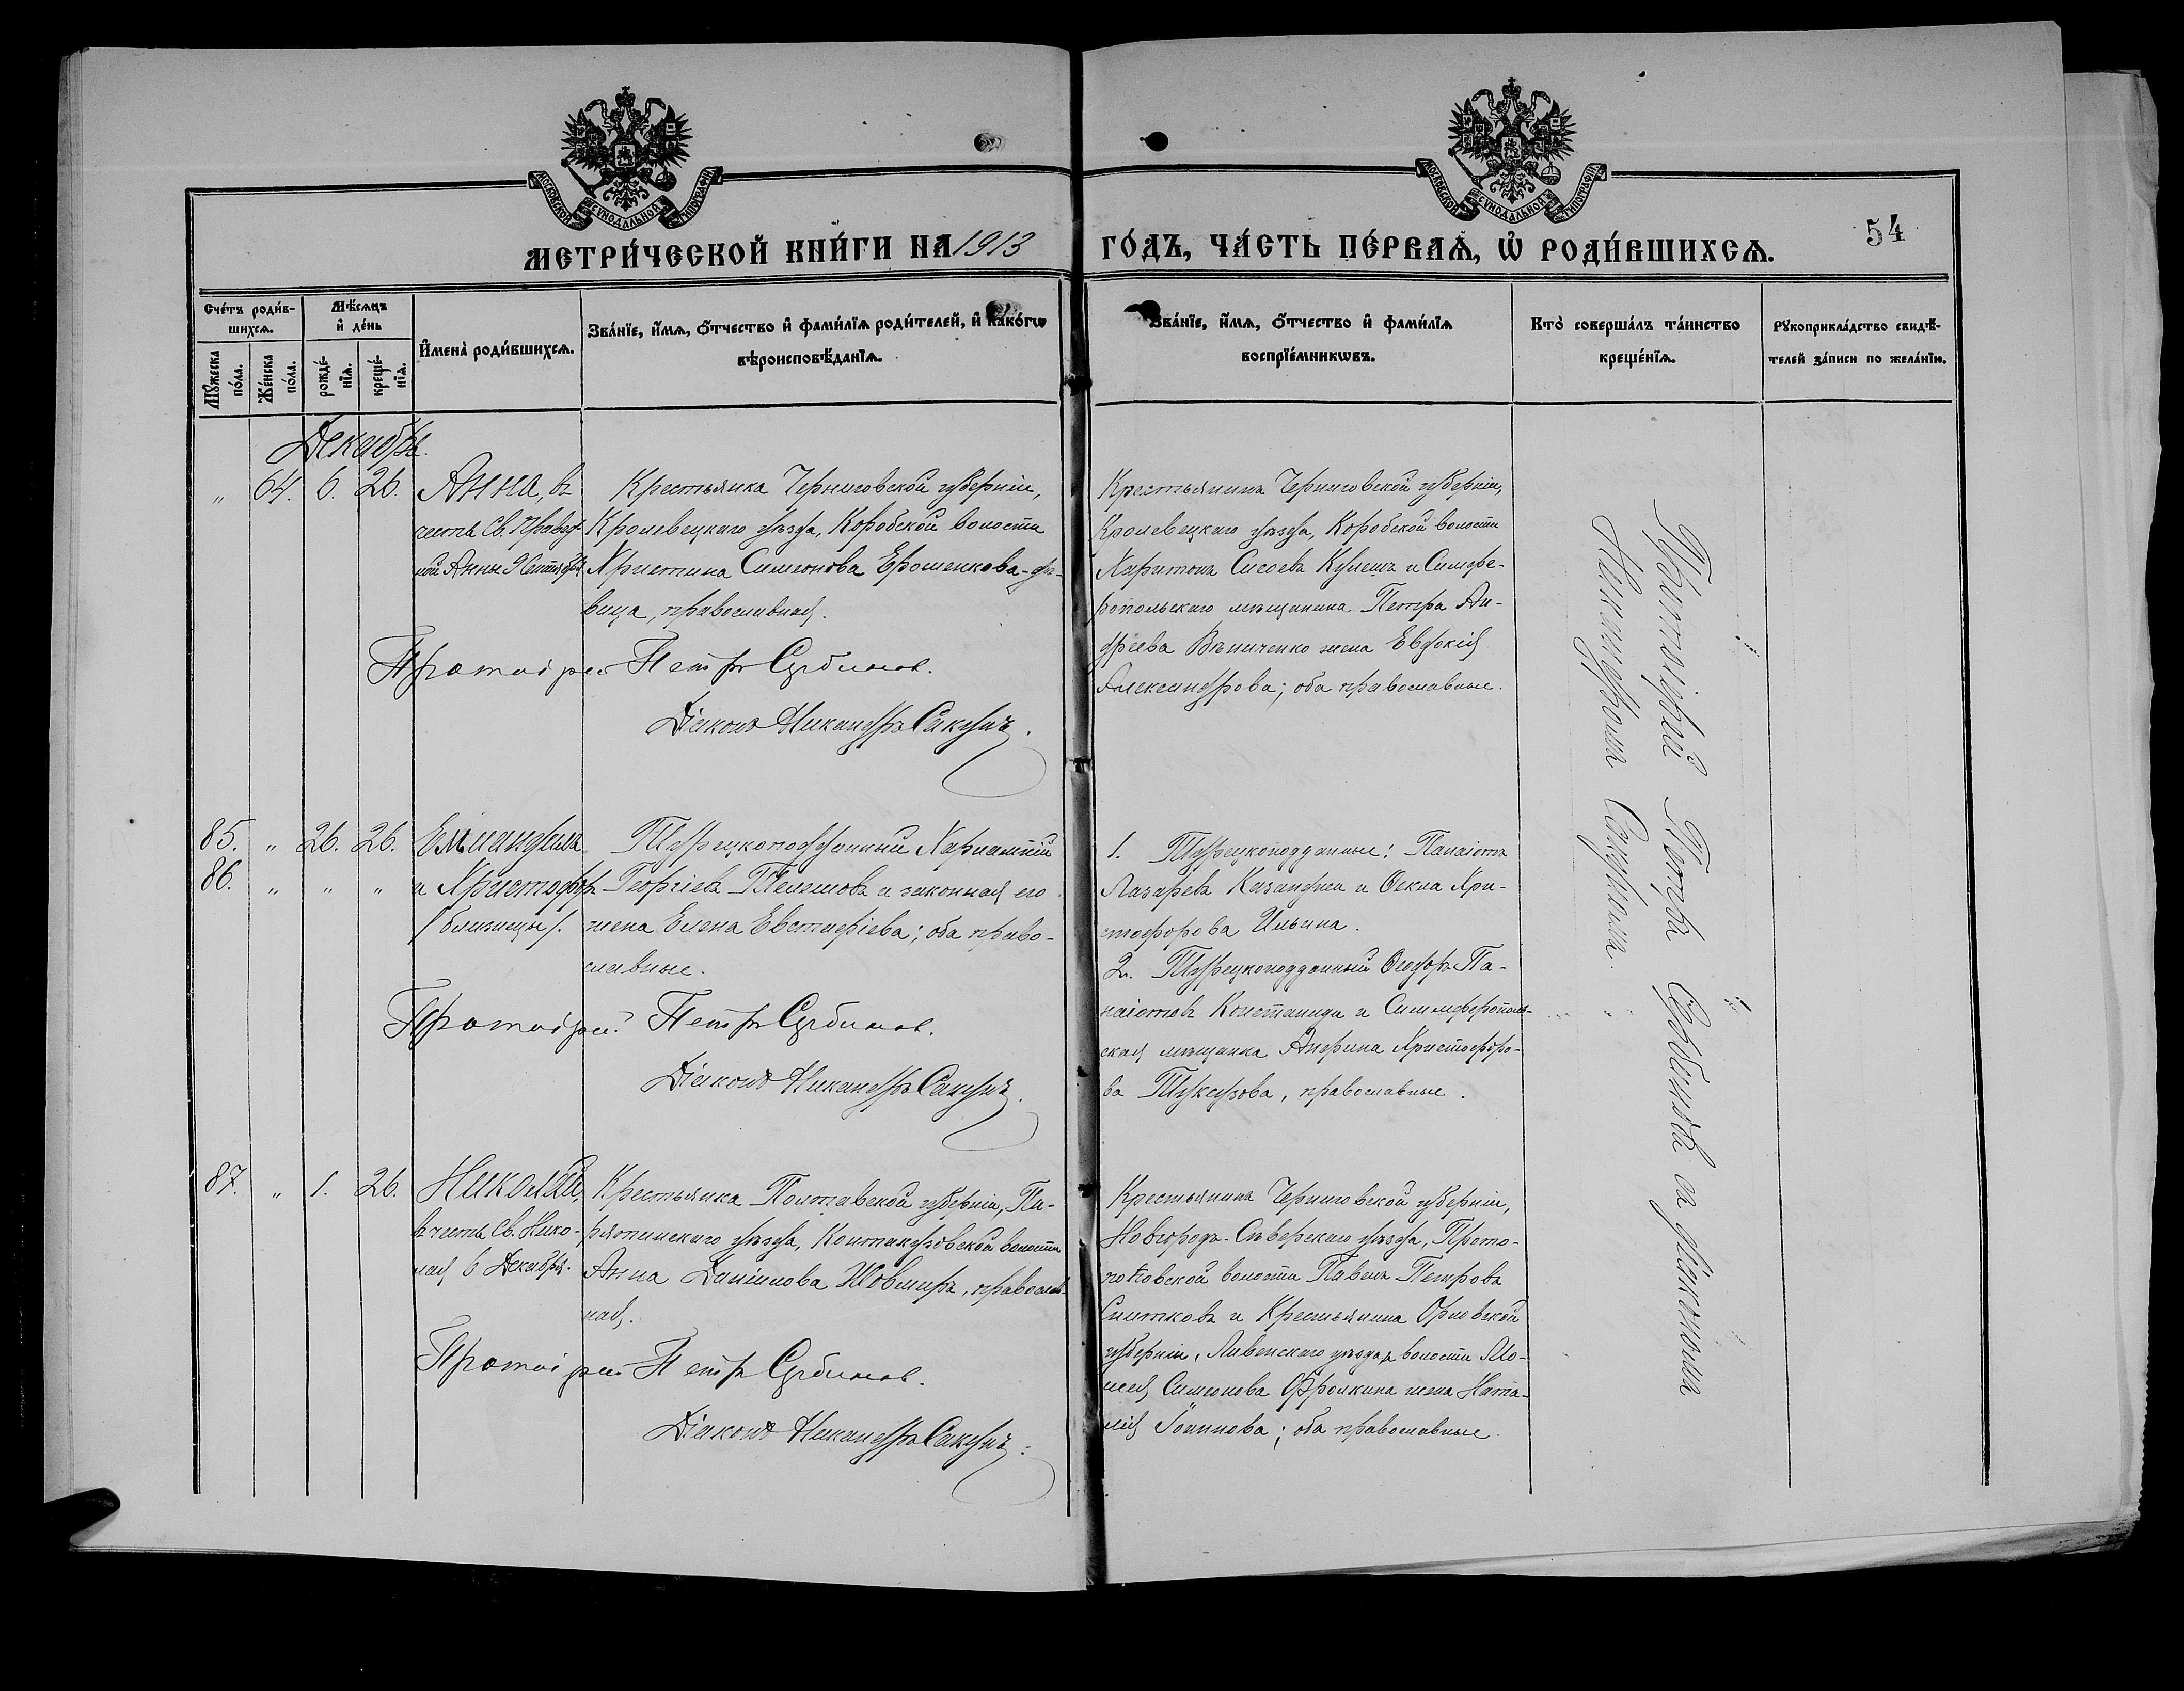 МОСКОВСКОЙ СУНОДАЛЬНОЙ ТИПОГРАФІИ
МОСКОВСКОЙ СУНОДАЛЬНОЙ ТИПОГРАФІИ
МЕТРИ́ЧЕСКОЙ КНИ́ГИ НА 1913
ГО́ДЪ, ЧА́СТЬ ПЕ́РВАѦ, Ѡ҆ РОДИ́ВШИХСѦ.
54
Сче́тъ роди́в-
шихсѧ.
Мꙋ́жеска
по́ла.
Же́нска
по́ла.
Мѣ́сѧцъ
и҆ де́нь
рожде́-
нїѧ.
креще́-
нїѧ.
И҆мена̀ роди́вшихсѧ.
Зва́нїе, и҆́мѧ, ѻ҆́тчество и҆ фамѝлїѧ роди́телей, и҆ како́гѡ
вѣроисповѣ́данїѧ.
Зва́нїе, и҆́мѧ, ѻ҆́тчество и҆ фамѝлїѧ
воспрїе́мникѡвъ.
Кто̀ соверша́лъ та́инство
креще́нїѧ.
Рꙋкоприкла́дство свидѣ́-
телей за́писи по жела́нїю.
Декабрь.
„ 64. 6. 26.
Анна, въ
честь Св. Правед-
ной Анны 9 Сентября
Крестьянка Черниговской губерніи,
Кролевецкаго уѣзда, Коробской волости
Христина Симеонова Ерошенкова - дѣ-
вица, православная.
Протоіерей Петръ Сербиновъ.
Діаконъ Никандръ Сакунъ.
Крестьянинъ Черниговской губерніи,
Кролевецкаго уѣзда, Коробской волости
Харитонъ Сисоевъ Кулешъ и Симфе-
ропольскаго мѣщанина Петра Ан-
дреева жена Евдокія
Александрова; оба православные.
85. „ 26. 26.
86. „ „ „
Еммануилъ
и Христофоръ
/близнецы/.
Турецкоподданный Харлампій
Георгіевъ и законная его
жена Елена Евстафіева; оба право-
славные.
Протоіерей Петръ Сербиновъ.
Діаконъ Никандръ Сакунъ.
1. Турецкоподданные: Панаіотъ
Лазаревъ и Ѳекла Хри-
стофорова Ильина.
2. Турецкоподданный Ѳеодоръ Па-
наіотовъ Константиди и Симферополь-
ская мѣщанка Христофоро-
ва православные.
87. „ 1. 26.
Николай,
въ честь Св. Нико-
лая 6 Декабря.
Крестьянка Полтавской губерніи, Пи-
рятинскаго уѣзда, волости
Анна Даніилова православ-
ная.
Протоіерей Петръ Сербиновъ.
Діаконъ Никандръ Сакунъ.
Крестьянинъ Черниговской губерніи,
Новгородъ-Сѣверскаго уѣзда, Прото-
поповской волости Павелъ Петровъ
и Крестьянина Орловской
губерніи, Ливенскаго уѣзда и волости Мо-
исея Симеонова Фролкина жена Ната-
лія Іоаннова; оба православные.
Протоіерей Петръ Сербиновъ съ діакономъ
Никандромъ Сакуномъ.